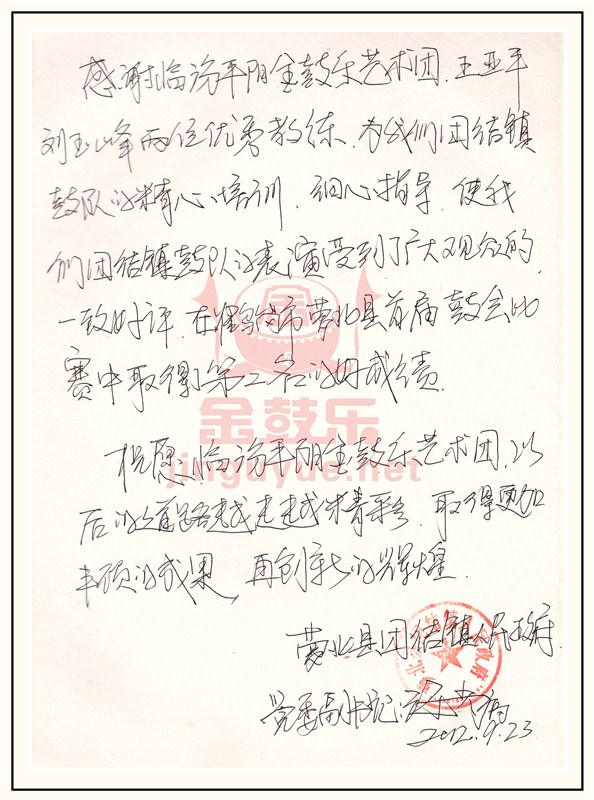 感谢临汾平阳金鼓乐艺术团，王亚平
刘玉峰两位优秀教练，为我们团结镇
鼓队的精心培训，细心指导，使我
们团结镇鼓队的表演受到了广大观众的，
一致好评，在鹤岗市萝北县首届鼓会比
赛中取得了第二名的好成绩。
金鼓乐
jinguyue.net
祝愿：临汾平阳金鼓乐艺术团，以
后的道路越走越精彩，取得更加
丰硕的成果，再创新的辉煌。
萝北县团结镇人民政府
党委副书记：
2012.9.23